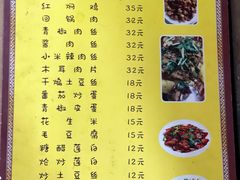 红焖鸡 35元
回锅肉 32元
青椒肉丝 32元
酱肉丝 32元
小米辣肉丝 32元
木耳肉片 32元
干煸土豆丝 18元
番茄炒蛋 18元
青椒皮蛋 18元
花生米 15元
毛豆腐 15元
糖醋莲白 12元
炝炒莲白 12元
炒土豆丝 12元